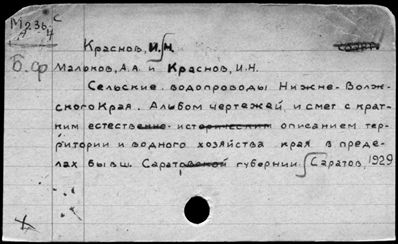 М 236 с
4
Краснов, И.Н.
Б.ф
Малюков, А.А. и Краснов, И.Н.
Сельские водопроводы Нижне-Волж-
ского Края. Альбом чертежей и смет с крат-
ким естественно-историческим описанием тер-
ритории и водного хозяйства края в преде-
лах бывш. Саратовской губернии. Саратов, 1929